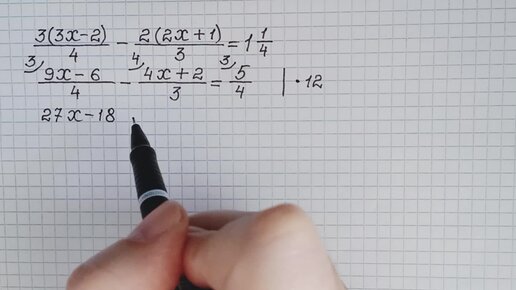 3(3x-2)/4 - 2(2x+1)/3 = 1 1/4
3) 9x-6/4 - 4) 4x+2/3 = 3) 5/4 | · 12
27x-18